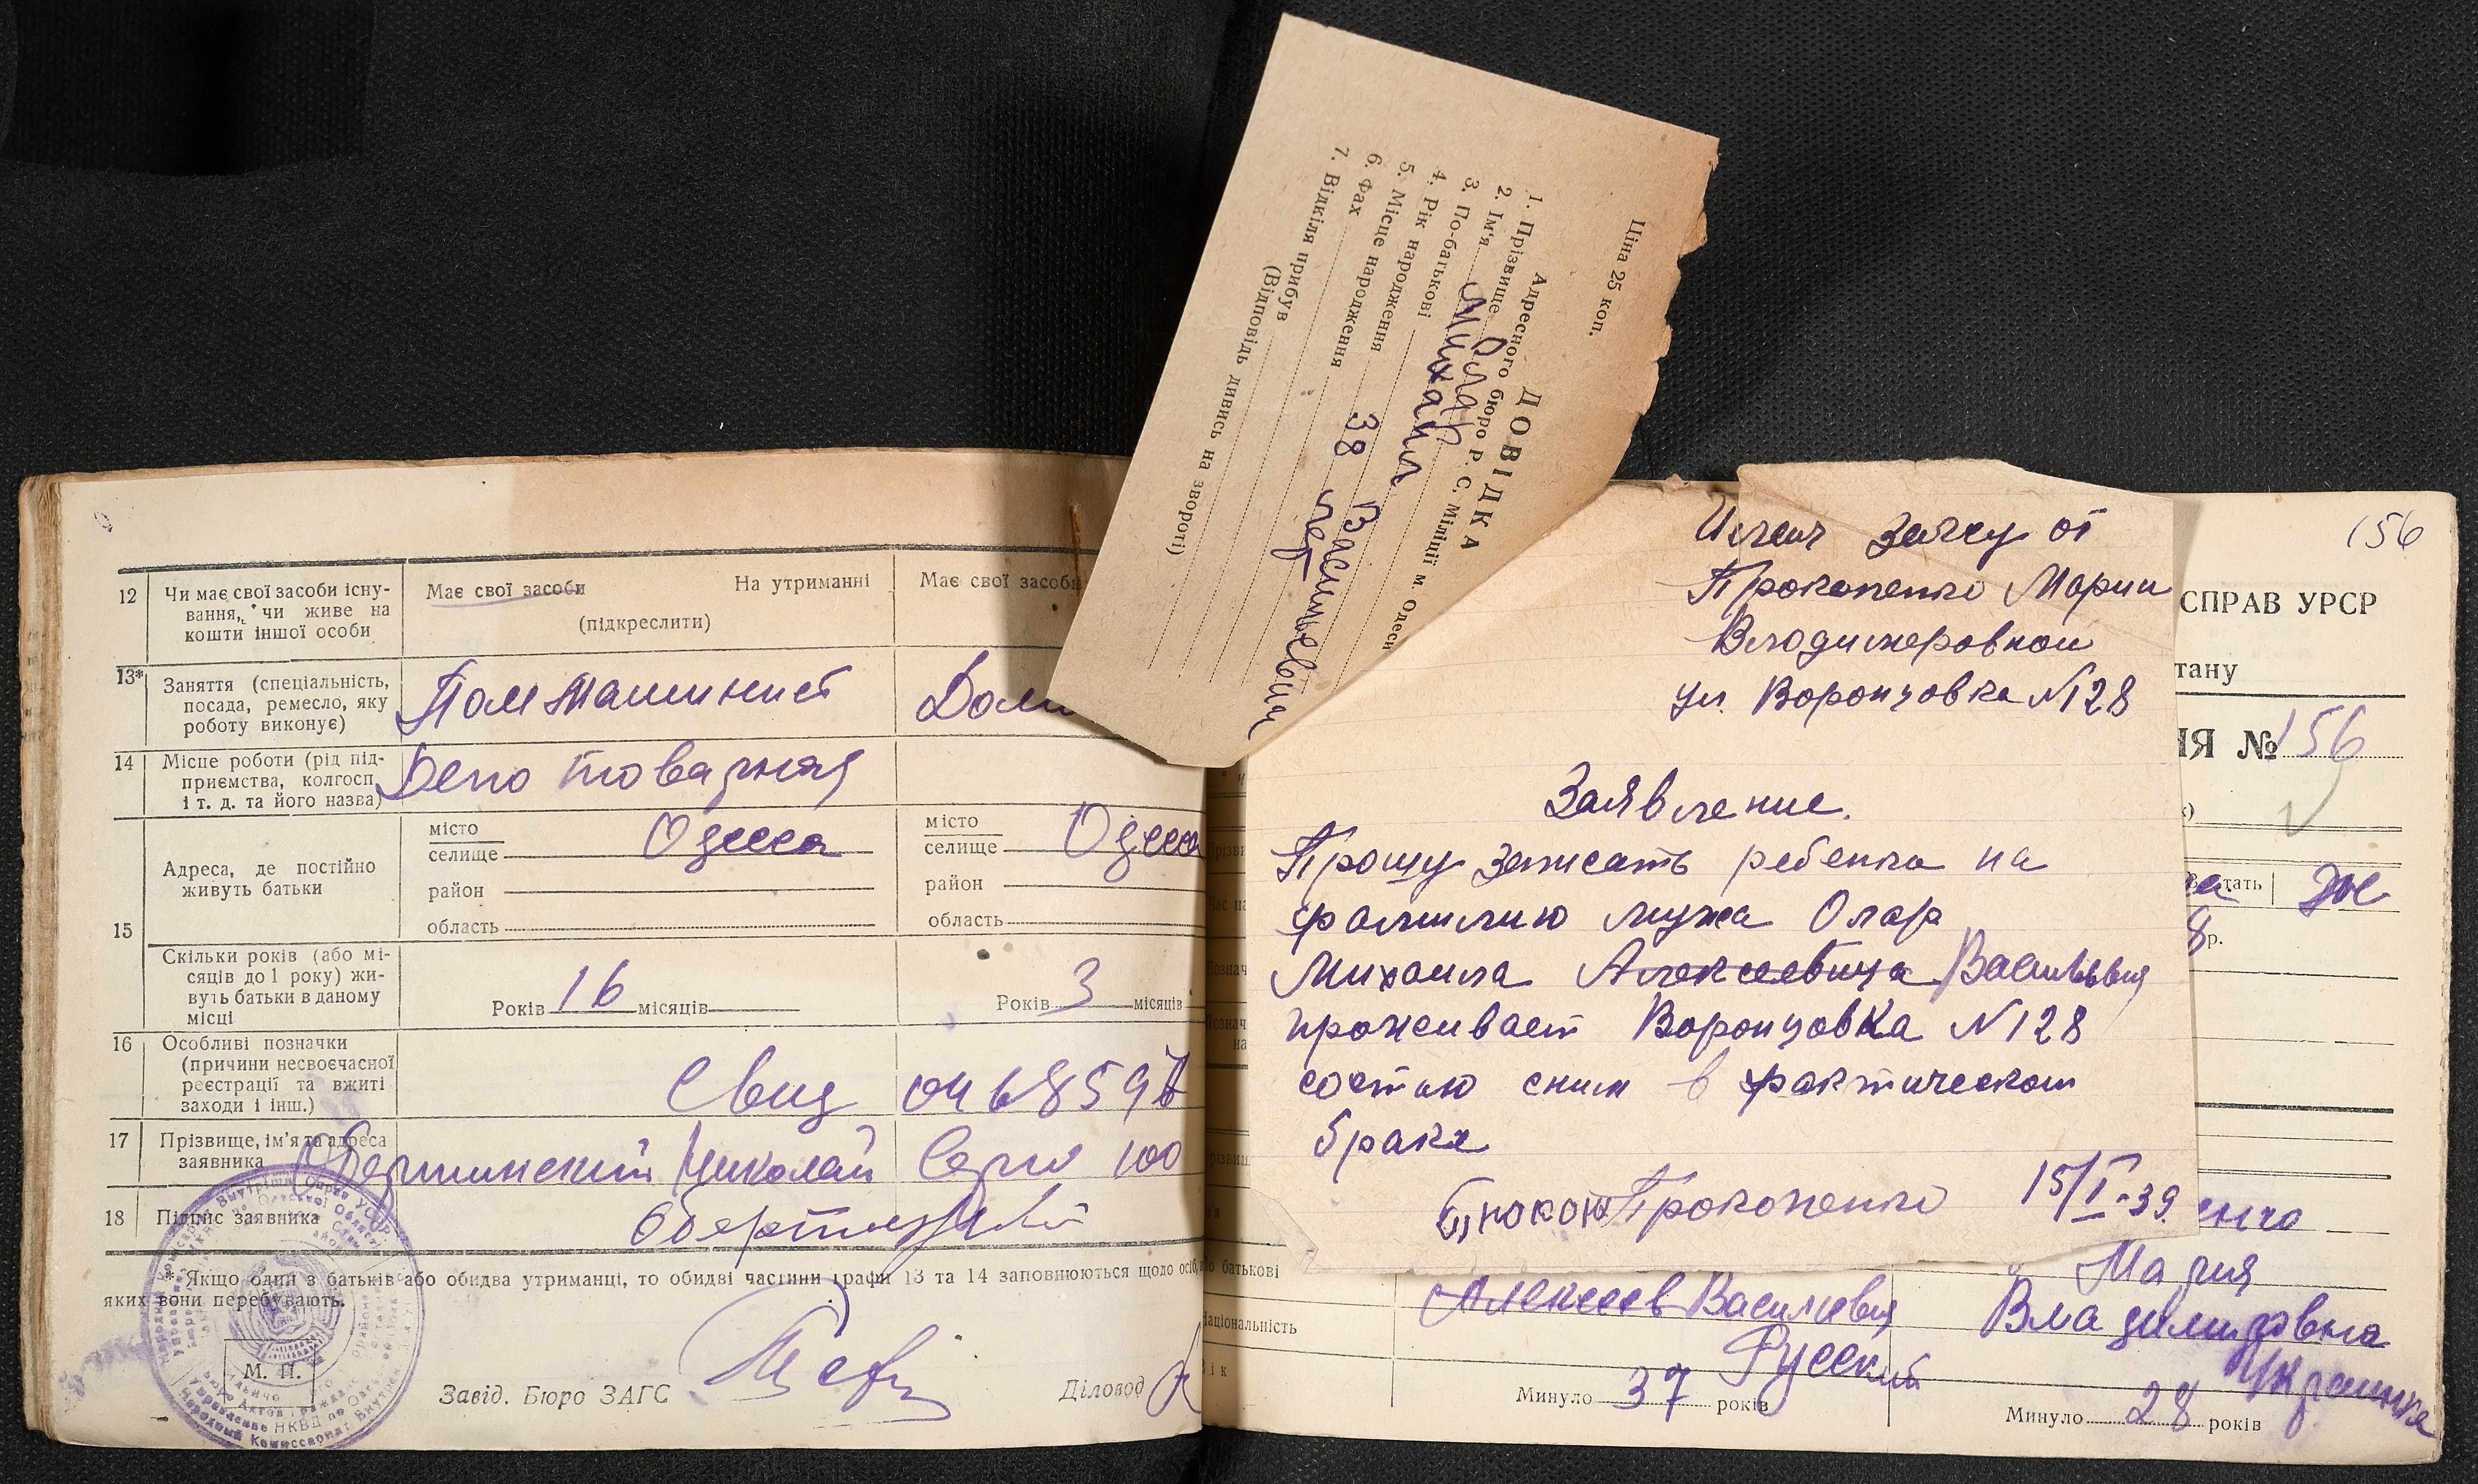 Ціна 25 коп.
ДОВІДКА
Адресного бюро Р. С. Міліції м. Одеси
1. Прізвище Олар
2. Ім'я Михаил
3. По-батькові Васильевич
4. Рік народження 38
5. Місце народження
6. Фах
7. Відкіля прибув
(Відповідь дивись на звороті)
12 Чи має свої засоби існу-
вання, чи живе на
кошти іншої особи
Має свої засоби На утриманні
(підкреслити)
Має свої засоби
13* Заняття (спеціальність,
посада, ремесло, яку
роботу виконує)
Пом Машинист
Дом
14 Місце роботи (рід під-
приємства, колгосп
і т. д. та його назва)
Депо товарная
15
Адреса, де постійно
живуть батьки
місто
селище Одесса
район
область
місто
селище Одесса
район
область
Скільки років (або мі-
сяців до 1 року) жи-
вуть батьки в даному
місці
Років 16 місяців
Років 3 місяців
16 Особливі позначки
(причини несвоєчасної
реєстрації та вжиті
заходи і інш.)
Свид
17 Прізвище, ім'я та адреса
заявника
Николай 100
18 Підпис заявника
* Якщо один з батьків або обидва утриманці, то обидві частини графи 13 та 14 заповнюються щодо осіб,
яких вони перебувають.
М. П.
Завід. Бюро ЗАГС
Діловод
Прокопенко Марии
Владимеровной
ул. Воронцовка №128
Заявление.
Прошу записать ребенка на
фамилию мужа Олар
Михаила Алексеевича Васильевич
проживает Воронцовка №128
состою сним в фактическом
браке
Прокопенко 15/I-39
156
СПРАВ УРСР
тану
НЯ № 156
р.
енко
Мария
Алексеев Василевич Владимировна
національність Русский Украинка
Вік Минуло 37 років Минуло 28 років